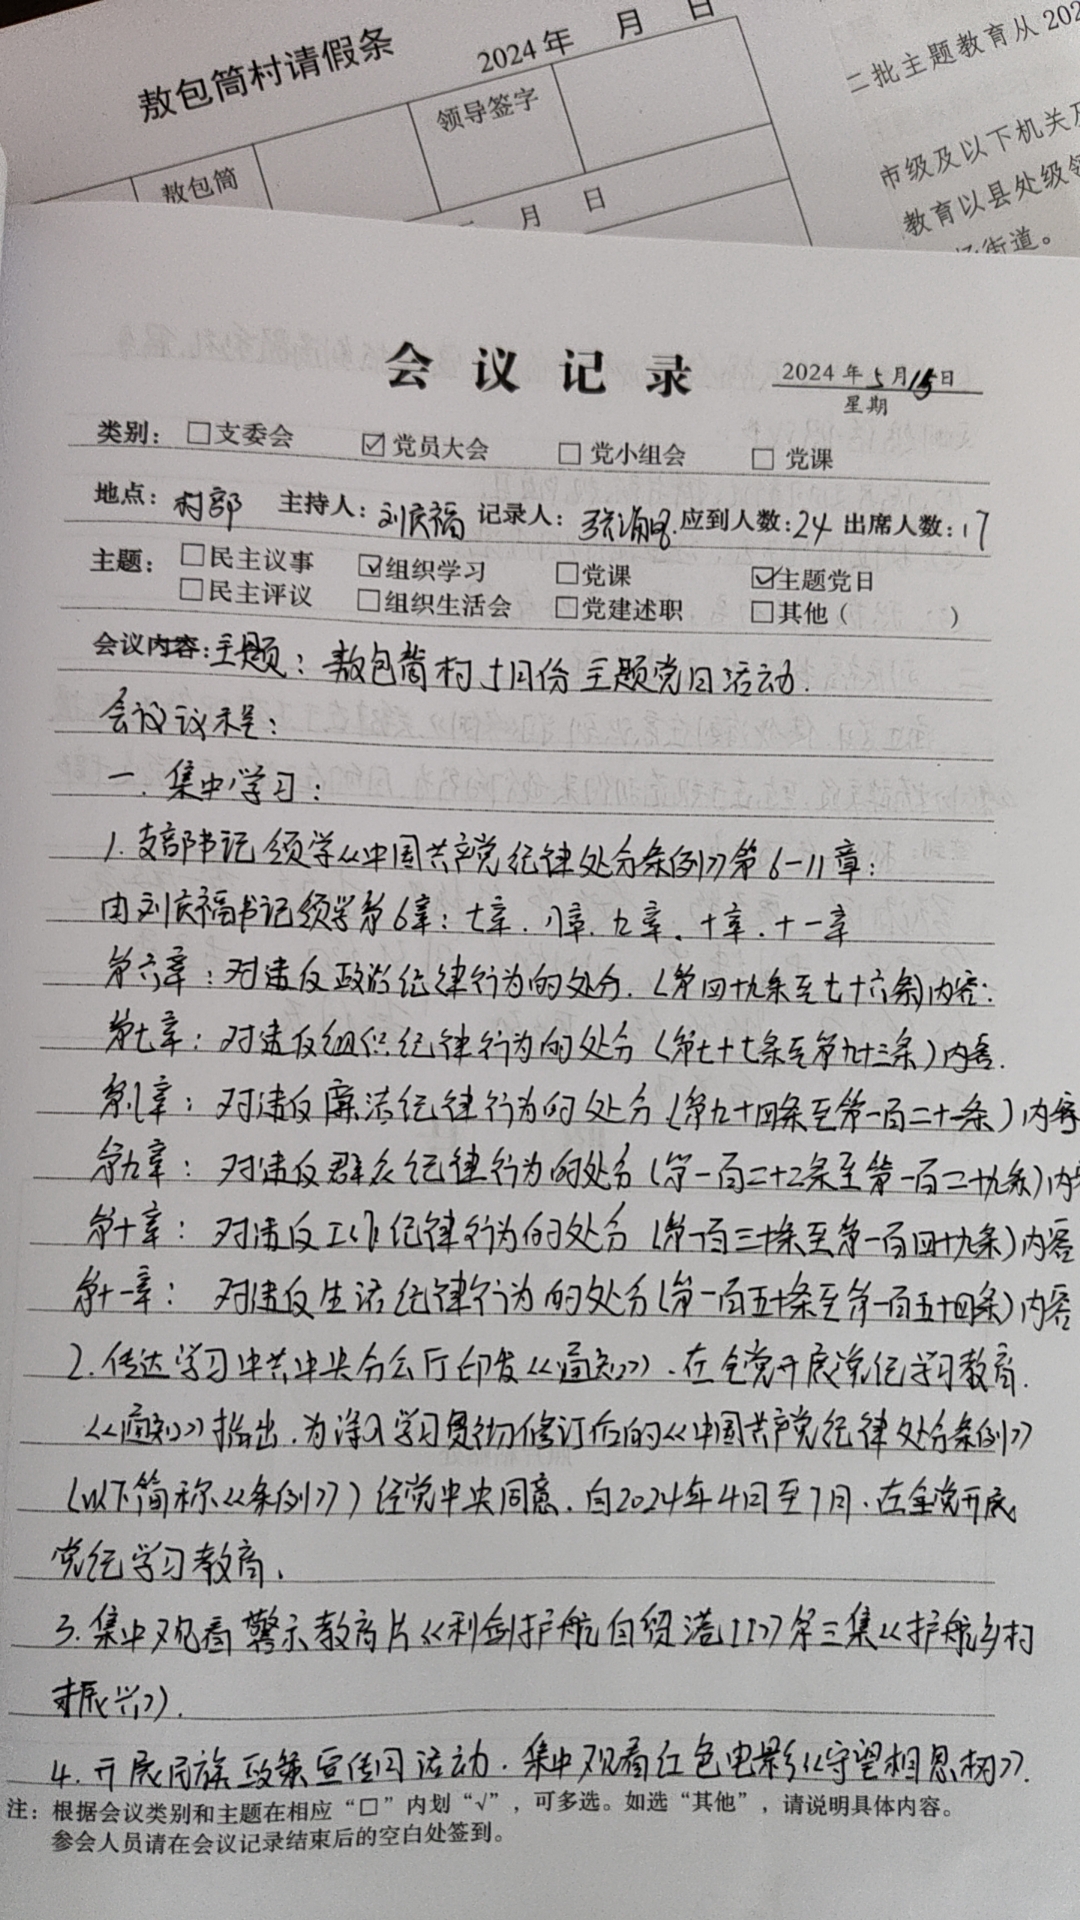 敖包筒村请假条
2024年 月 日
领导签字
敖包筒
月 日
二批主题教育从202
市级及以下机关及
教育以县处级领
街道。
会议记录
2024年5月15日
星期
类别: □支委会 ☑党员大会 □党小组会 □党课
地点: 村部 主持人: 刘庆福 记录人: 应到人数:24 出席人数:17
主题: □民主议事 ☑组织学习 □党课 ☑主题党日
□民主评议 □组织生活会 □党建述职 □其他( )
会议内容:主题:敖包筒村5月份主题党日活动.
会议议程:
一.集中学习:
1.支部书记领学《中国共产党纪律处分条例》第6-11章:
由刘庆福书记领学第6章:七章.八章.九章.十章.十一章
第六章:对违反政治纪律行为的处分.(第四十九条至七十六条)内容:
第七章:对违反组织纪律行为的处分(第七十七条至第九十三条)内容.
第八章:对违反廉洁纪律行为的处分(第九十四条至第一百二十一条)内容
第九章:对违反群众纪律行为的处分(第一百二十二条至第一百二十九条)内容
第十章:对违反工作纪律行为的处分(第一百三十条至第一百四十九条)内容
第十一章:对违反生活纪律行为的处分(第一百五十条至第一百五十四条)内容
2.传达学习中共中央办公厅印发《通知》.在全党开展党纪学习教育.
《通知》指出.为深入学习贯彻修订后的《中国共产党纪律处分条例》
(以下简称《条例》)经党中央同意.自2024年4月至7月.在全党开展
党纪学习教育.
3.集中观看警示教育片《利剑护航自贸港II》第三集《护航乡村
振兴》.
4.开展民族政策宣传月活动.集中观看红色电影《守望相思树》.
注:根据会议类别和主题在相应“□”内划“√”,可多选。如选“其他”,请说明具体内容。
参会人员请在会议记录结束后的空白处签到。